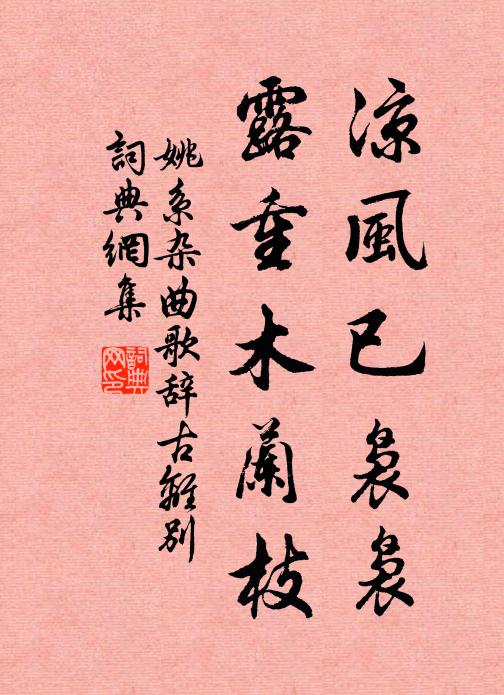 涼風已裊裊
露重木蘭枝
姚系杂曲歌辞古離別
詞典網集
詞典網印